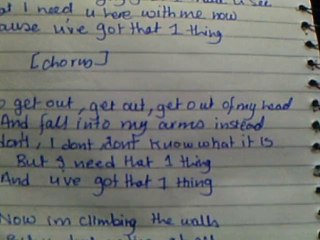 at I need u here with me now
cause u've got that 1 thing
[chorus]
o get out, get out, get out of my head
And fall into my arms instead
dont, I dont, dont know what it is
But I need that 1 thing
And u've got that 1 thing
Now im climbing the walls